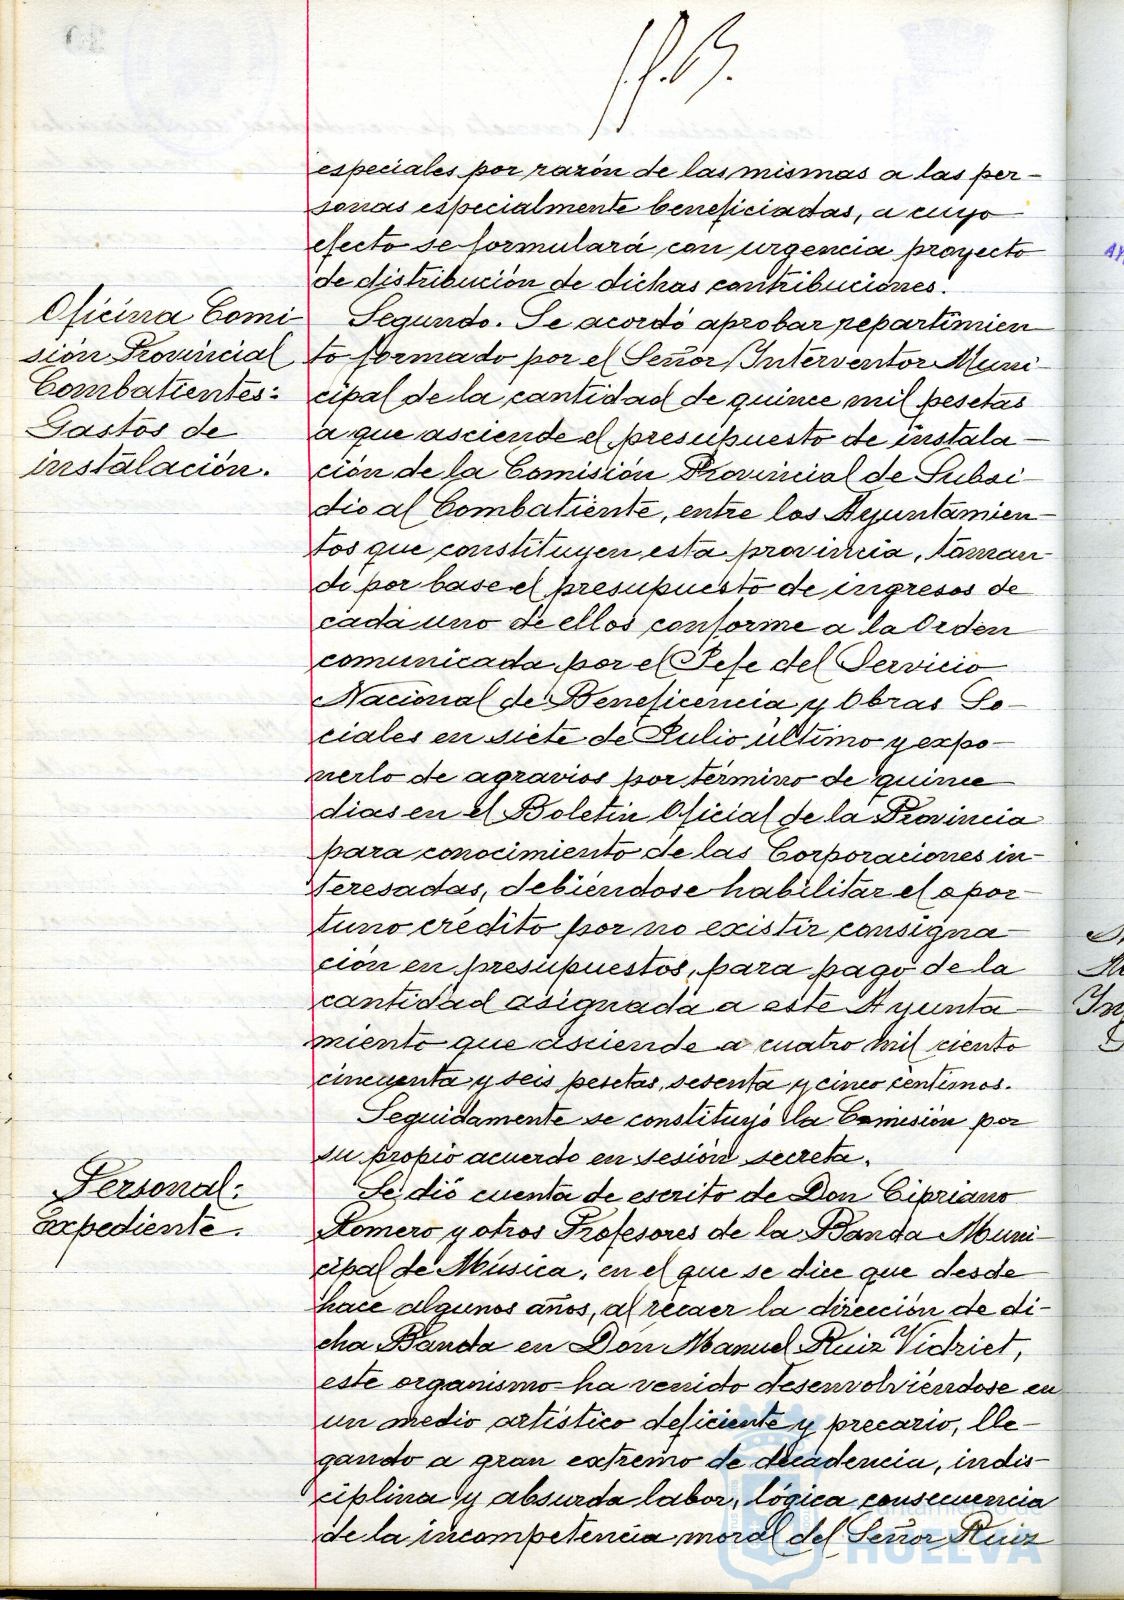 especiales por razón de las mismas a las per-
sonas especialmente beneficiadas, a cuyo
efecto se formulará con urgencia proyecto
de distribución de dichas contribuciones.
Oficina Comi-
sión Provincial
Combatientes:
Gastos de
instalación.
Segundo. Se acordó aprobar repartimien-
to formado por el Señor Interventor Muni-
cipal de la cantidad de quince mil pesetas
a que asciende el presupuesto de instala-
ción de la Comisión Provincial de Subsi-
dio al Combatiente, entre los Ayuntamien-
tos que constituyen esta provincia, toman-
do por base el presupuesto de ingresos de
cada uno de ellos conforme a la Orden
comunicada por el Jefe del Servicio
Nacional de Beneficencia y Obras So-
ciales en siete de Julio último y expo-
nerlo de agravios por término de quince
dias en el Boletin Oficial de la Provincia
para conocimiento de las Corporaciones in-
teresadas, debiéndose habilitar el opor-
tuno crédito por no existir consigna-
ción en presupuestos, para pago de la
cantidad asignada a este Ayunta-
miento que asciende a cuatro mil ciento
cincuenta y seis pesetas, sesenta y cinco centimos.
Seguidamente se constituyó la Comisión por
su propio acuerdo en sesión secreta.
Personal:
Expediente.
Se dió cuenta de escrito de Don Cipriano
Romero y otros Profesores de la Banda Muni-
cipal de Música, en el que se dice que desde
hace algunos años, al recaer la dirección de di-
cha Banda en Don Manuel Ruiz Vidriet,
este organismo ha venido desenvolviéndose en
un medio artístico deficiente y precario, lle-
gando a gran extremo de decadencia, indis-
ciplina y absurda labor, lógica consecuencia
de la incompetencia moral del Señor Ruiz
Ayuntamiento de
HUELVA